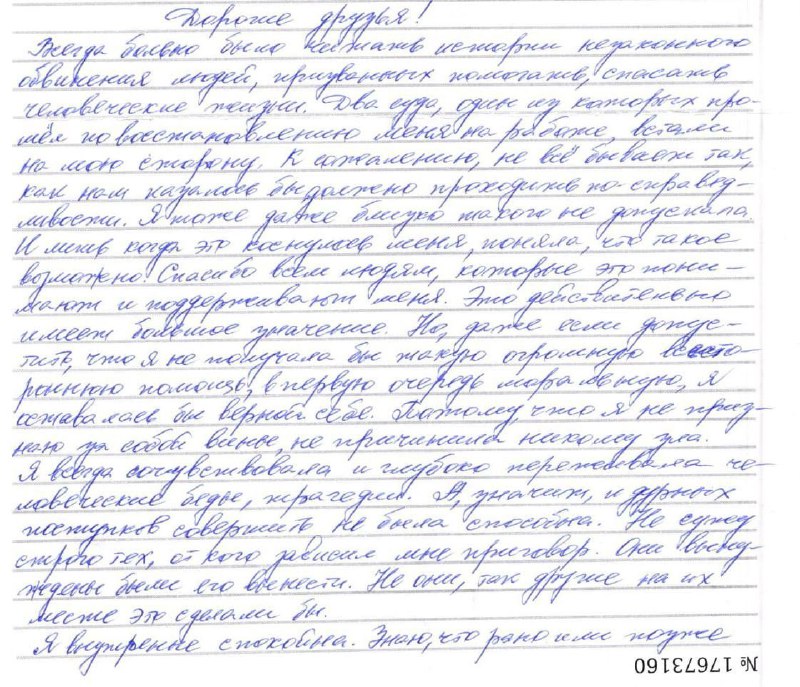 Дорогие друзья!
Всегда больно было читать истории незаконного
обвинения людей, призванных помогать, спасать
человеческие жизни. Два суда, один из которых про-
шёл по восстановлению меня на работе, встали
на мою сторону. К сожалению, не всё бывает так,
как нам казалось бы должно проходить по справед-
ливости. Я тоже даже близко такого не допускала.
И лишь когда это коснулось меня, поняла, что такое
возможно. Спасибо всем людям, которые это пони-
мают и поддерживают меня. Это действительно
имеет большое значение. Но, даже если допус-
тить, что я не получала бы такую огромную всесто-
роннюю помощь, в первую очередь моральную, я
оставалась бы верной себе. Потому что я не приз-
наю за собой вины, не причинила никому зла.
Я всегда сочувствовала и глубоко переживала че-
ловеческие беды, трагедии. А, значит, и дурных
поступков совершить не была способна. Не сужу
строго тех, от кого зависил мне приговор. Они вынуж-
ждены были его вынести. Не они, так другие на их
месте это сделали бы.
Я внутренне спокойна. Знаю, что рано или позже
№ 17673160